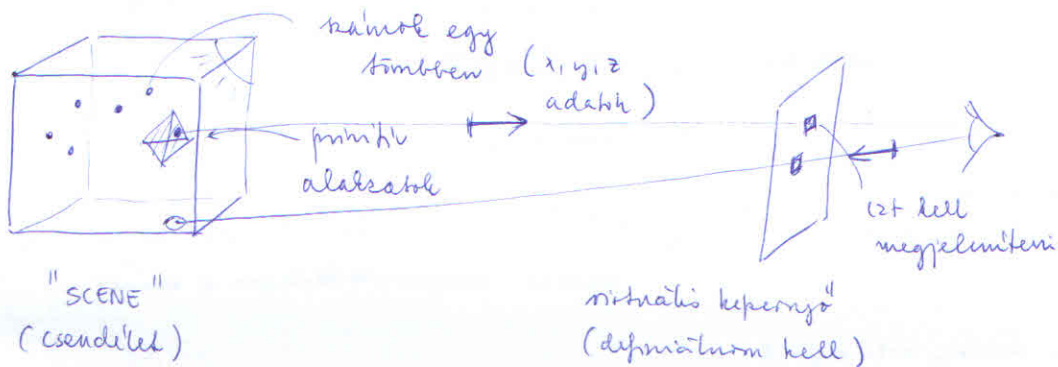 számok egy
tömbben (x, y, z
adatok)
primitív
alakzatok
ezt kell
megjeleníteni
"SCENE"
(csendélet)
virtuális képernyő
(definiálnom kell)